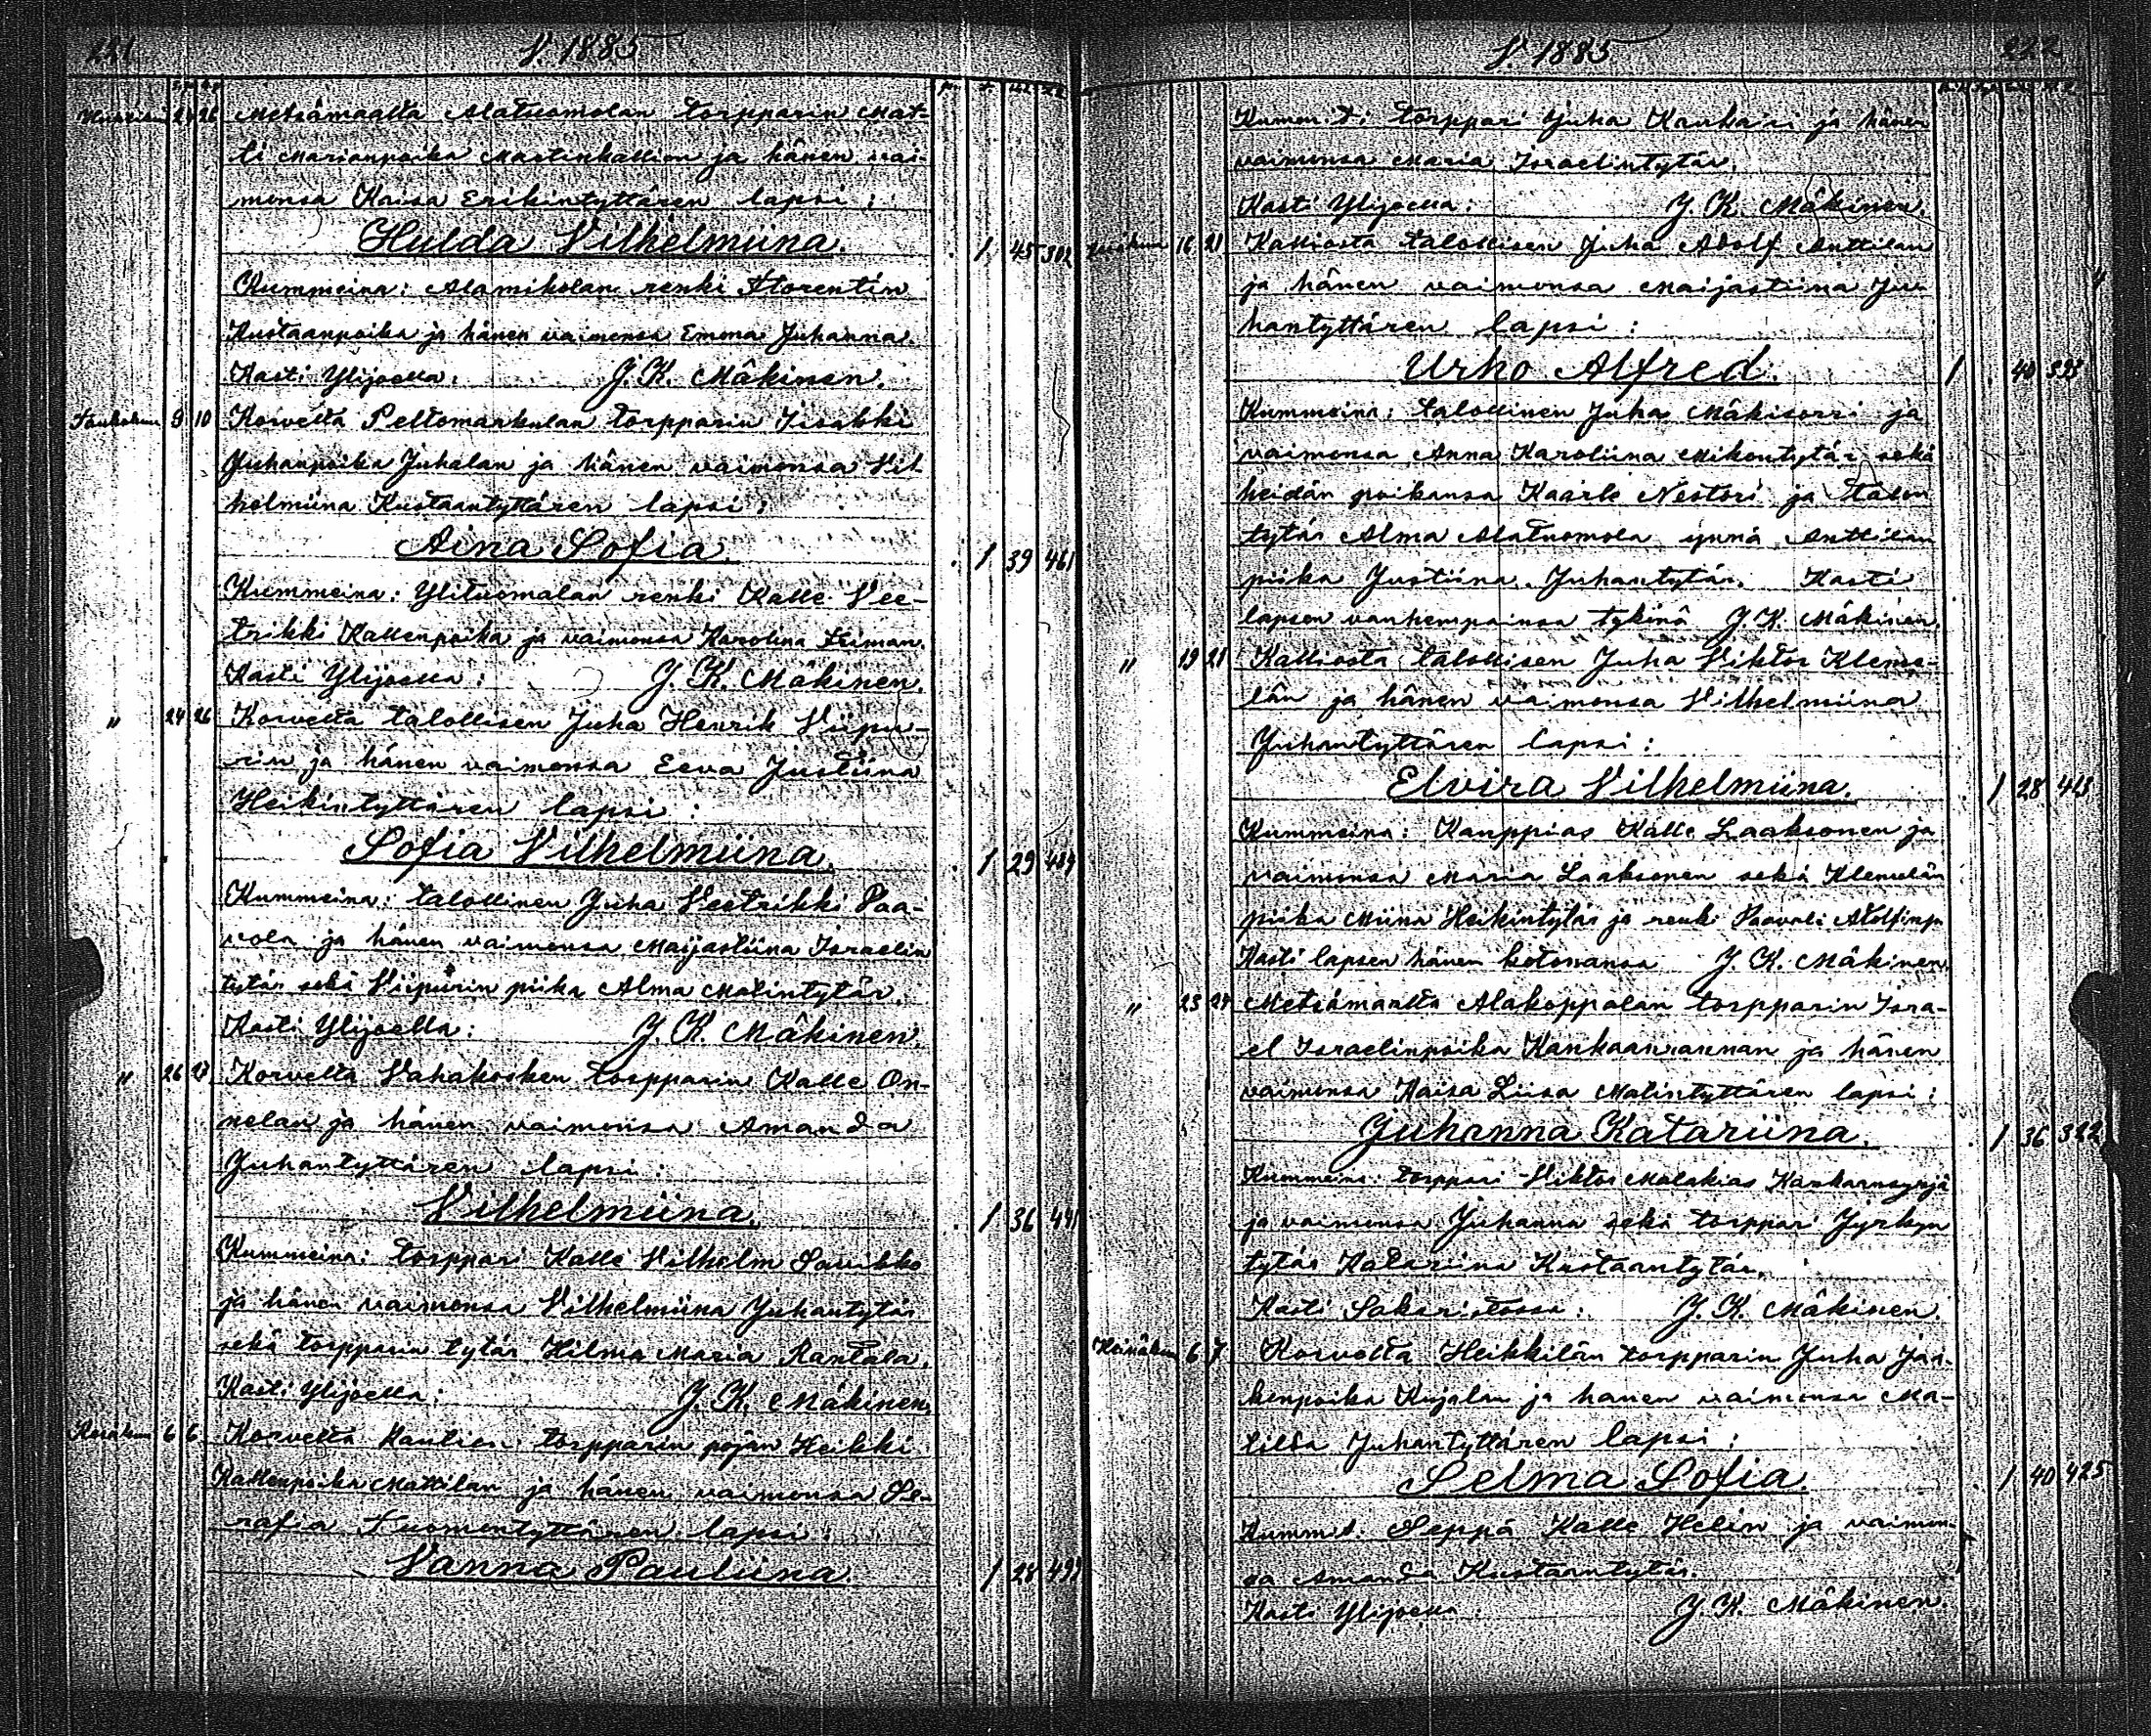 221 V. 1885
Huhtikuu 24 26 Metsämaalta Alatuomolan torpparin Mat-
ti Marianpoika Martinkallion ja hänen vai-
monsa Kaisa Erikintyttären lapsi:
Hulda Vilhelmiina. 1 45 302
Kummeina: Alamikolan renki Florentin
Kustaanpoika ja hänen vaimonsa Emma Juhanna.
Kasti Ylijoella. J. K. Mäkinen.
Toukokuu 9 10 Korvelta Peltomarkulan torpparin Iisakki
Juhanpoika Juhalan ja hänen vaimonsa Vil
helmiina Kustaantyttären lapsi:
Aina Sofia. 1 39 461
Kummeina: Ylituomalan renki Kalle Vee-
trikki Kallenpoika ja vaimonsa Karolina
Kasti Ylijoella: J. K. Mäkinen.
" 24 26 Korvelta talollisen Juha Henrik Viipu-
rin ja hänen vaimonsa Eeva Justiina
Heikintyttären lapsi:
Sofia Vilhelmiina. 1 29 489
Kummeina: talollinen Juha Veetrikki Paa-
vola ja hänen vaimonsa Maijastiina Israelin
tytär sekä Viipurin piika Alma Matintytär.
Kasti Ylijoella: J. K. Mäkinen.
" 26 27 Korvelta Vahakosken torpparin Kalle On-
nelan ja hänen vaimonsa Amanda
Juhantyttären lapsi:
Vilhelmiina. 1 36 491
Kummeina: torppari Kalle Vilhelm Savikko
ja hänen vaimonsa Vilhelmiina Juhantytär
sekä torpparin tytär Hilma Maria Rantala.
Kasti Ylijoella: J. K. Mäkinen.
Kesäkuu 6 6 Korvelta Raution torpparin pojan Heikki
Kallenpoika Mattilan ja hänen vaimonsa Se-
rafia Tuomontyttären lapsi:
Vanna Pauliina. 1 28
V. 1885 222
Kummit: torppari Juha Kauhari ja hänen
vaimonsa Maria Israelintytär.
Kasti Ylijoella: J. K. Mäkinen.
Kesäkuu 16 21 Kalliosta talollisen Juha Adolf Anttilan
ja hänen vaimonsa Maijastiina Ju-
hantyttären lapsi:
Urho Alfred. 1 40 393
Kummeina: talollinen Juha Mäkisorri ja
vaimonsa Anna Karoliina Mikontytär sekä
heidän poikansa Kaarle Nestori ja talon
tytär Alma Alatuomola ynnä Anttilan
piika Justiina Juhantytär. Kasti
lapsen vanhempainsa tykönä J. K. Mäkinen.
" 19 21 Kalliosta talollisen Juha Viktor Kleme-
län ja hänen vaimonsa Vilhelmiina
Juhantyttären lapsi:
Elvira Vilhelmiina. 1 28 413
Kummeina: Kauppias Kalle Laaksonen ja
vaimonsa Maria Laaksonen sekä Klemelän
piika Miina Heikintytär ja renki Paavali Adolfinp
Kasti lapsen hänen kotonansa J. K. Mäkinen.
" 23 24 Metsämaalta Alakoppalan torpparin Isra-
el Israelinpoika Kankaanrannan ja hänen
vaimonsa Kaisa Liisa Matintyttären lapsi:
Juhanna Katariina. 1 36 322
Kummeina: torppari Viktor Malakias
ja vaimonsa Juhanna sekä torppari Jyrkyn
tytär Katariina Kustaantytär.
Kasti Sakaristossa: J. K. Mäkinen.
Heinäkuu 6 7 Korvelta Heikkilän torpparin Juha Jaa-
kenpoika Kujalan ja hänen vaimonsa Ma-
tilda Juhantyttären lapsi:
Selma Sofia. 1 40 425
Kummit: Seppä Kalle Helin ja vaimon-
sa Amanda Kustaantytär.
Kasti Ylijoella: J. K. Mäkinen.